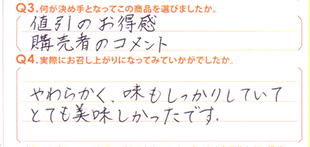 Q3.何が決め手となってこの商品を選びましたか。
値引のお得感
購売者のコメント
Q4.実際にお召し上がりになってみていかがでしたか。
やわらかく、味もしっかりしていて
とても美味しかったです.